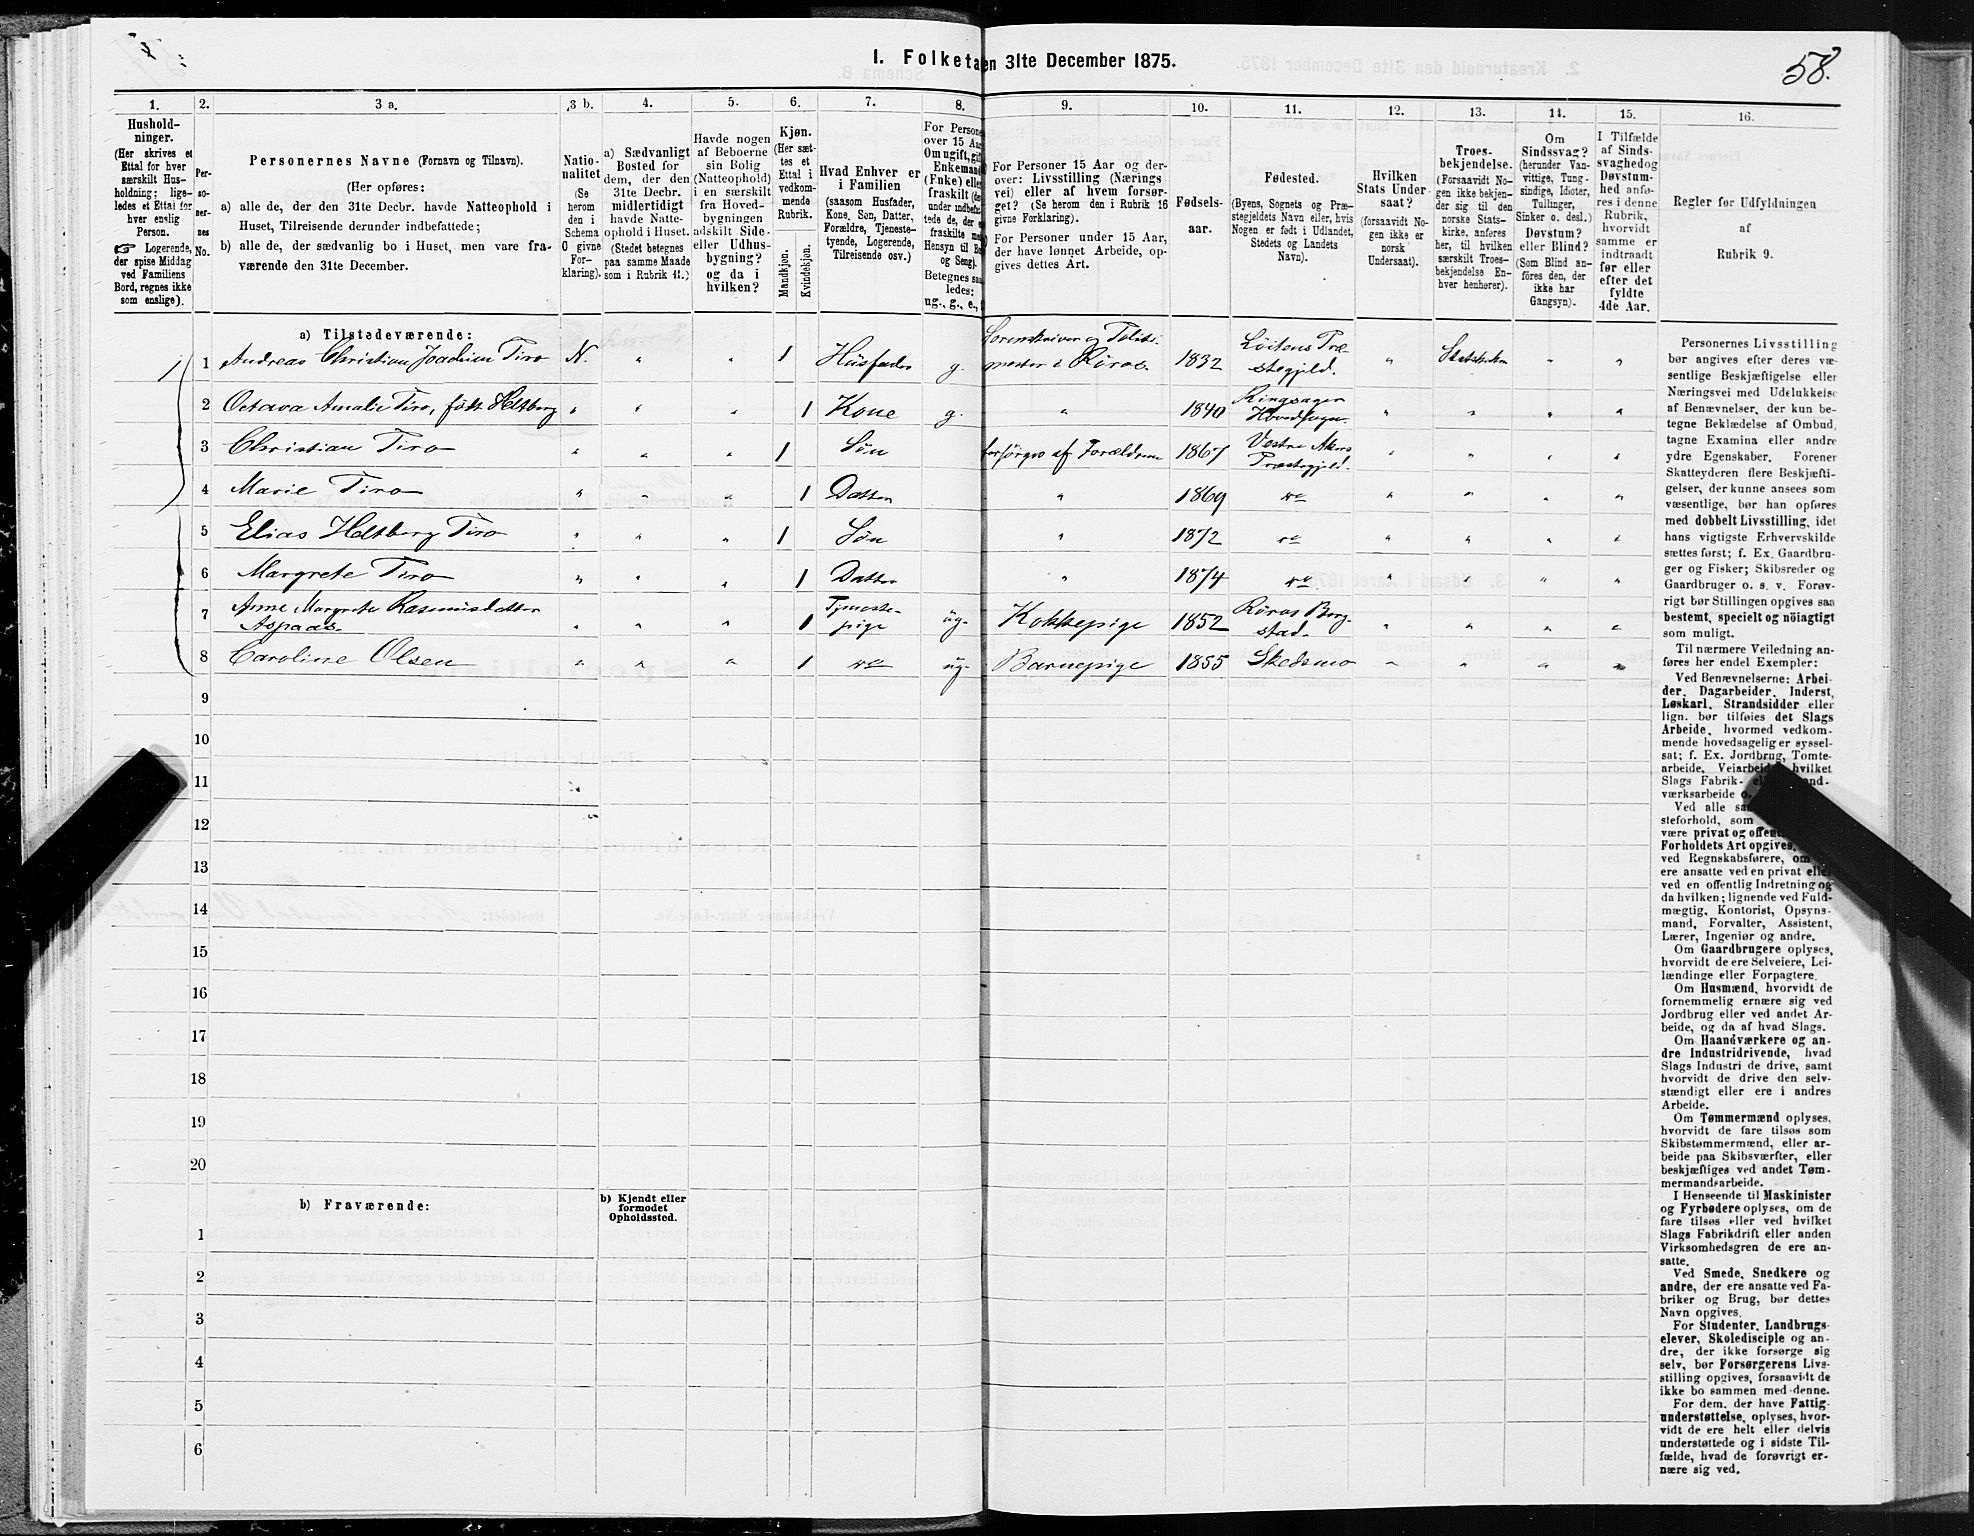 58.
I. Folketa en 31te December 1875.
1. 2. 3 a. 3 b. 4. 5. 6. 7. 8. 9. 10. 11. 12. 13. 14. 15. 16.
Hushold-
ninger.
(Her skrives et
Ettal for hver
særskilt Hus-
holdning; lige-
ledes et Ettal for
hver enslig
Person.
☞ Logerende,
der spise Middag
ved Familiens
Bord, regnes ikke
som enslige).
Per-
so-
ner-
nes
No.
Personernes Navne (Fornavn og Tilnavn).
(Her opføres:
a) alle de, der den 31te Decbr. havde Natteophold i
Huset, Tilreisende derunder indbefattede;
b) alle de, der sædvanlig bo i Huset, men vare fra-
værende den 31te December.
Natio-
nalitet
(Se
herom
den i
Schema
O givne
For-
klaring).
a) Sædvanligt
Bosted for
dem, der den
31te Decbr.
midlertidigt
havde Natte-
ophold i Huset.
(Stedet betegnes
paa samme Maade
som i Rubrik 11.)
Havde nogen
af Beboerne
sin Bolig
(Natteophold)
i en særskilt
fra Hoved-
bygningen
adskilt Side-
eller Udhus-
bygning?
og da i
hvilken?
Kjøn.
(Her sæt-
tes et
Ettal i
vedkom-
mende
Rubrik.
Mandkjøn.
Kvindekjøn.
Hvad Enhver er
i Familien
(saasom Husfader,
Kone, Søn, Datter,
Forældre, Tjeneste-
tyende, Logerende,
Tilreisende osv.)
For Persone
over 15 Aa
Om ugift, gif
Enkeman
(Enke) elle
fraskilt (de
under indbefat
tede de, der e
fraskilte me
Hensyn til Bo
og Seng).
Betegnes saa
ledes:
ug., g., e.,
For Personer 15 Aar og der-
over: Livsstilling (Nærings
vei) eller af hvem forsør-
get? (Se herom den i Rubrik 16
givne Forklaring).
For Personer under 15 Aar,
der have lønnet Arbeide, op-
gives dettes Art.
Fødsels-
aar.
Fødested.
(Byens, Sognets og Præ-
stegjeldets Navn eller, hvis
Nogen er født i Udlandet,
Stedets og Landets
Navn).
Hvilken
Stats Under-
saat?
(forsaavidt No-
gen ikke er
norsk
Undersaat).
Troes-
bekjendelse.
(Forsaavidt No-
gen ikke bekjen-
der sig til den
norske Stats-
kirke, anføres
her, til hvilken
særskilt Troes-
bekjendelse En-
hver henhører).
Om
Sindssvag?
(herunder Van-
vittige, Tung-
sindige, Idioter,
Tullinger,
Sinker o. desl.)
Døvstum?
eller Blind?
(Som Blind an-
føres den, der
ikke har
Gangsyn).
I Tilfælde
af Sinds-
svaghed og
Døvstum-
hed anfø-
res i denne
Rubrik,
hvorvidt
samme er
indtraadt
før eller
efter det
fyldte
4de Aar.
Regler for Udfyldningen
af
Rubrik 9.
a) Tilstedeværende:
1 1 Andreas Christian Joachim Tiro N. " " 1 Husfader g. Sorenskriver og Politi-
mester i Röros. 1832 Löitens Præ-
stegjeld. " Statskirken " "
2 Octava Amalie Tiro, født Heltberg " " " 1 Kone g. " 1840 Ringsager
Hovedsogn. " " " "
3 Christian Tiro " " " 1 Søn forsørges af Forældrene 1867 Vestre Akers
Præstegjeld. " " " "
4 Marie Tiro " " " 1 Datter " 1869 do " " " "
5 Elias Heltberg Tiro " " " 1 Søn " 1872 do " " " "
6 Margrete Tiro " " " 1 Datter " 1874 do " " " "
7 Anne Margrete Rasmusdatter
Aspaas. " " " 1 Tjeneste-
pige ug. Kokkepige 1852 Röros Berg-
stad. " " " "
8 Caroline Olsen " " " 1 do ug. Barnepige 1855 Skedsmo " " " "
9
10
11
12
13
14
15
16
17
18
19
20
b) Fraværende:
b) Kjendt eller
formodet
Opholdssted.
1
2
3
4
5
6
Personernes Livsstilling
bør angives efter deres væ-
sentlige Beskjæftigelse eller
Næringsvei med Udelukkelse
af Benævnelser, der kun be-
tegne Beklædelse af Ombud,
tagne Examina eller andre
ydre Egenskaber. Forener
Skatteyderen flere Beskjæfti-
gelser, der kunne ansees som
væsentlige, bør han opføres
med dobbelt Livsstilling, idet
hans vigtigste Erhvervskilde
sættes først; f. Ex. Gaardbru-
ger og Fisker; Skibsreder og
Gaardbruger o. s. v. Forøv-
rigt bør Stillingen opgives saa
bestemt, specielt og nöiagtigt
som muligt.
Til nærmere Veiledning an-
føres her endel Exempler:
Ved Benævnelserne: Arbei-
der, Dagarbeider, Inderst,
Løskarl, Strandsidder eller
lign. bør tilføies det Slags
Arbeide, hvormed vedkom-
mende hovedsagelig er syssel-
sat; f. Ex. Jordbrug, Tomte-
arbeide, Veiarbeide hvilket
Slags Fabrik- el and-
værksarbeide o.
Ved alle sa
steforhold, som
være privat og offent
Forholdets Art opgives.
ved Regnskabsførere, om
ere ansatte ved en privat eller
ved en offentlig Indretning og
da hvilken; lignende ved Fuld-
mægtig, Kontorist, Opsyns-
mand, Forvalter, Assistent,
Lærer, Ingeniør og andre.
Om Gaardbrugere oplyses,
hvorvidt de ere Selveiere, Lei-
lændinge eller Forpagtere.
Om Husmænd, hvorvidt de
fornemmelig ernære sig ved
Jordbrug eller ved andet Ar-
beide, og da af hvad Slags.
Om Haandværkere og an-
dre Industridrivende, hvad
Slags Industri de drive, samt
hvorvidt de drive den selv-
stændigt eller ere i andres
Arbeide.
Om Tømmermænd oplyses,
hvorvidt de fare tilsøs som
Skibstømmermænd, eller ar-
beide paa Skibsværfter, eller
beskjæftiges ved andet Tøm-
mermandsarbeide.
I Henseende til Maskinister
og Fyrbødere oplyses, om de
fare tilsøs eller ved hvilket
Slags Fabrikdrift eller anden
Virksomhedsgren de ere an-
satte.
Ved Smede, Snedkere og
andre, der ere ansatte ved Fa-
briker og Brug, bør dettes
Navn opgives.
For Studenter, Landbrugs-
elever, Skoledisciple og an-
dre, der ikke forsørge sig
selv, bør Forsørgerens Livs-
stilling opgives, forsaavidt de
ikke bo sammen med denne.
For dem, der have Fattig-
understøttelse, oplyses, hvor-
vidt de ere helt eller delvis
understøttede og i sidste Til-
fælde, hvad de forøvrigt er-
nære sig ved.